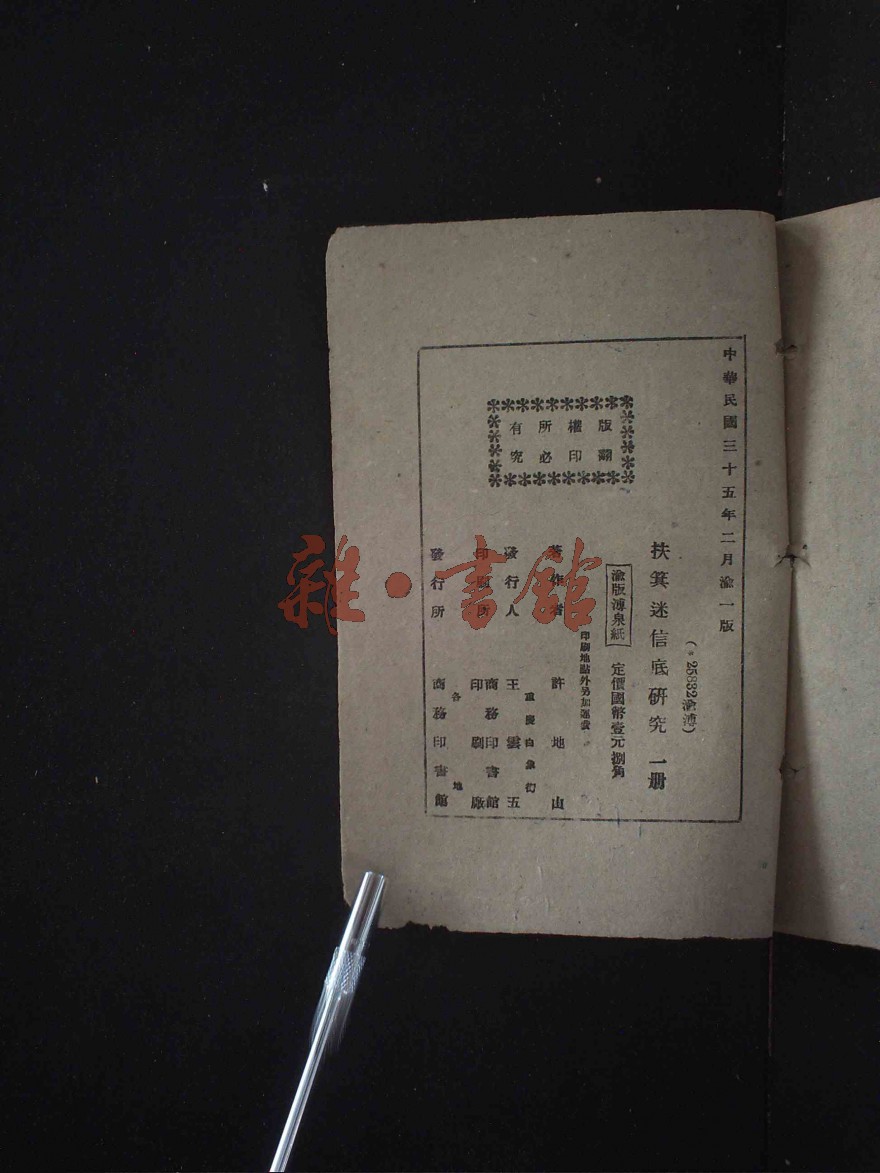 中華民國三十五年二月渝一版
(25832渝溥)
扶箕迷信底研究 一册
渝版溥泉紙 定價國幣壹元捌角
印刷地點外另加運費
版權所有
翻印必究
著作者 許地山
重慶白象街
發行人 王雲五
印刷所 商務印書館印刷廠
各地
發行所 商務印書館
雜·書館